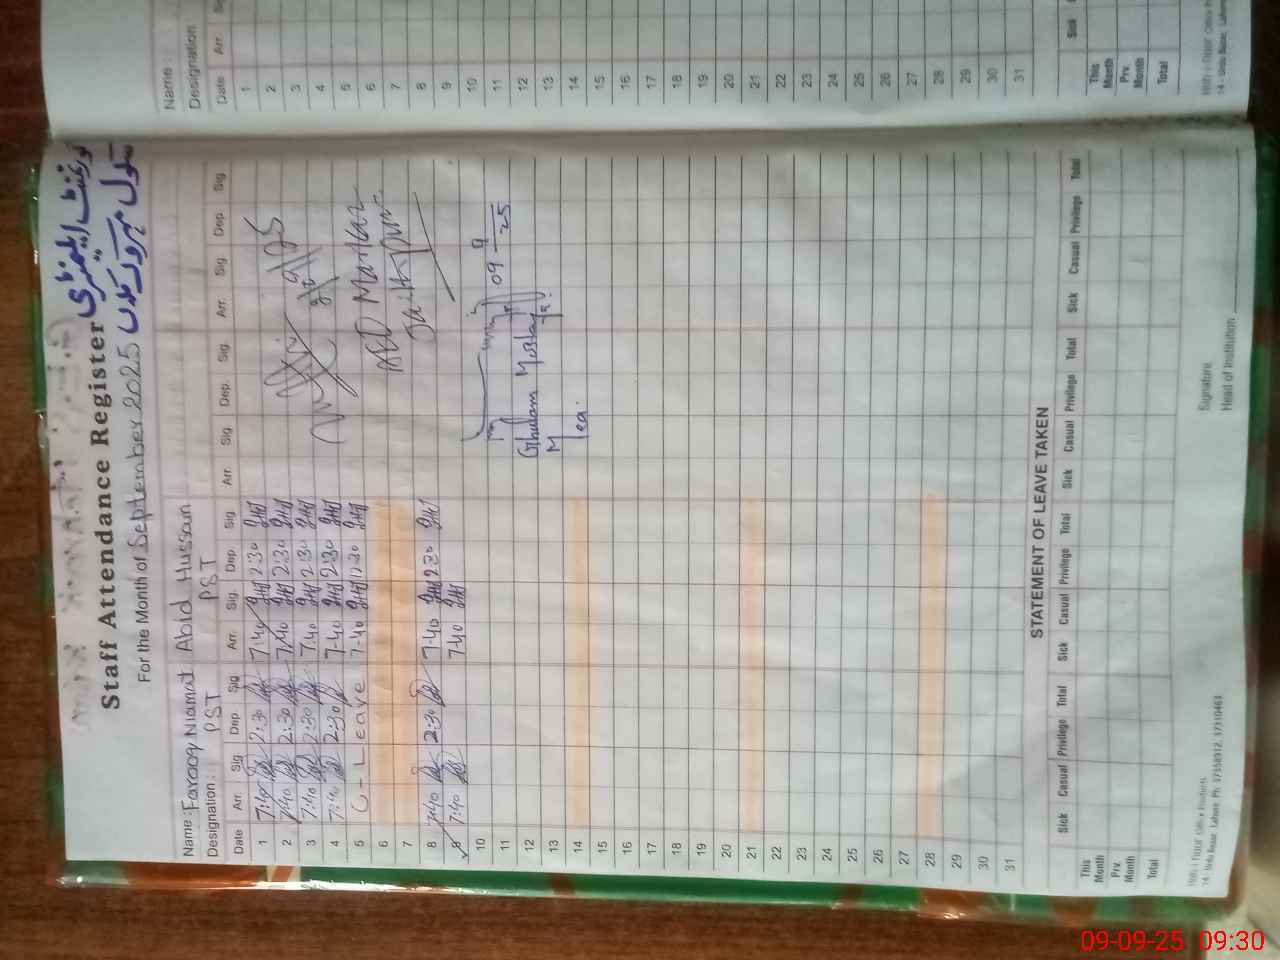 گورنمنٹ ایلیمنٹری
سکول مہروک کلاں
Staff Attendance Register
For the Month of September 2025
Name: Farooq Niamat Abid Hussain
Designation: PST PST
Date Arr. Sig Dep Sig Arr. Sig. Dep. Sig Arr. Sig Dep. Sig Arr. Sig Dep Sig
1 7:40 2:30 7:40 2:30
2 7:40 2:30 7:40 2:30
3 7:40 2:30 7:40 2:30
4 7:40 2:30 7-40 2:30
5 C-Leave 7-40 12:30
6
7
8 7:40 2:30 7-40 2:30
9 7:40 7-40
10
11
12
13
14
15
16
17
18
19
20
21
22
23
24
25
26
27
28
29
30
31
AEO Markaz
09 9/25
Ghulam Mustafa
Mea.
STATEMENT OF LEAVE TAKEN
Sick Casual Privilege Total Sick Casual Privilege Total Sick Casual Privilege Total Sick Casual Privilege Total
This Month
Prv. Month
Total
Signature
Head of Institution
14 - Urdu Bazar, Lahore. Ph: 37358912, 37310461
Name:
Designation
Date Arr. Sig
1
2
3
4
5
6
7
8
9
10
11
12
13
14
15
16
17
18
19
20
21
22
23
24
25
26
27
28
29
30
31
Sick
This Month
Prv. Month
Total
14 - Urdu Bazar, Lahore
09-09-25 09:30